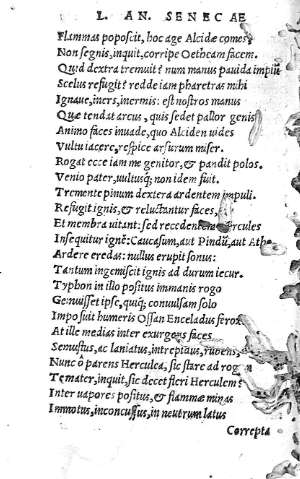 L. AN. SENECAE
Flammas poposcit, hoc age Alcidæ comes,
Non segnis, inquit, corripe Oetheam facem.
Quid dextra tremuit? num manus pauida impiũ
Scelus refugit? redde iam pharetras mihi
Ignaue, iners, inermis: est nostros manus
Quæ tendat arcus, quis sedet pallor genis?
Animo faces inuade, quo Alciden uides
Vultu iacere, respice arsurum miser.
Rogat ecce iam me genitor, & pandit polos.
Venio pater, uultusq; non idem fuit.
Tremente pinum dextera ardentem impuli.
Refugit ignis, & reluctantur faces,
Et membra uitant: sed recedentem Hercules
Insequitur ignẽ: Caucasum, aut Pindũ, aut Atho
Ardere credas: nullus erupit sonus:
Tantum ingemiscit ignis ad durum iecur.
Typhon in illo positus immanis rogo
Gemuisset ipse, quiq; conuulsam solo
Imposuit humeris Ossan Enceladus ferox.
At ille medias inter exurgens faces
Semustus, ac laniatus, intrepidus, rubens,
Nunc ô parens Herculea, sic stare ad rogum
Te mater, inquit, sic decet fleri Herculem?
Inter uapores positus, & flammæ minas
Immotus, inconcussus, in neutrum latus
Correpta